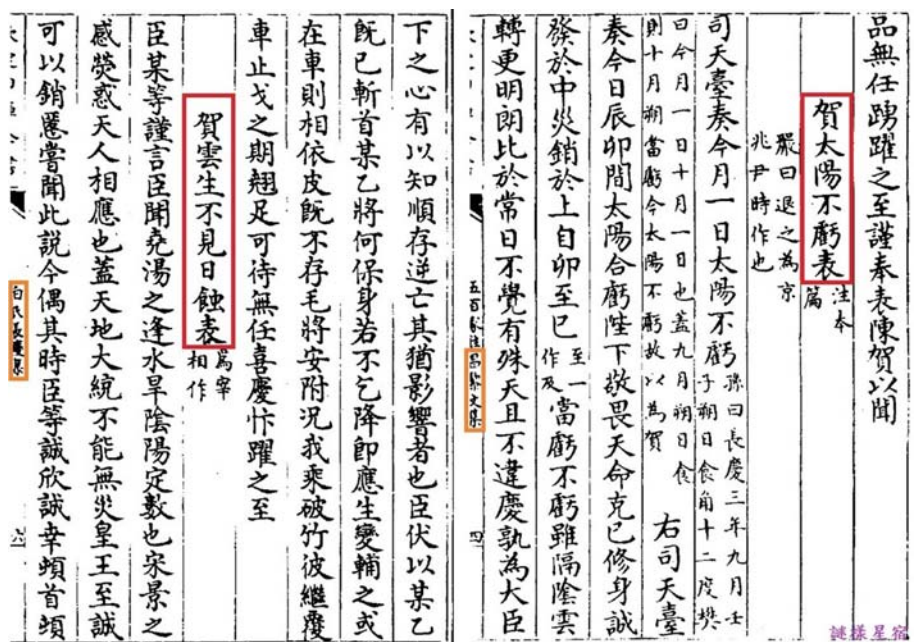 品無任踴躍之至謹奉表陳賀以聞
賀太陽不虧表
注本
篇
嚴曰退之為京
兆尹時作也
司天臺奏今月一日太陽不虧
孫曰長慶三年九月壬
子朔日食角十二度樊
曰今月一日十月一日也蓋九月朔日食
則十月朔當虧今太陽不虧故以為賀
右司天臺
奏今日辰卯間太陽合虧陛下敬畏天命克己修身誠
發於中災銷於上自卯至巳
至一
作及
當虧不虧雖隔陰雲
轉更明朗比於常日不覺有殊天且不違慶孰為大臣
五百家註昌黎文集
四
下之心有以知順存逆亡其猶影響者也臣伏以某乙
既已斬首某乙將何保身若不乞降即應生變輔之或
在車則相依皮既不存毛將安附况我乘破竹彼繼覆
車止戈之期翹足可待無任喜慶忭躍之至
賀雲生不見日蝕表
為宰
相作
臣某等謹言臣聞堯湯之逢水旱陰陽定數也宋景之
感熒惑天人相應也蓋天地大統不能無災皇王至誠
可以銷慝嘗聞此說今偶其時臣等誠欣誠幸頓首頓
白氏長慶集
謎樣星宿